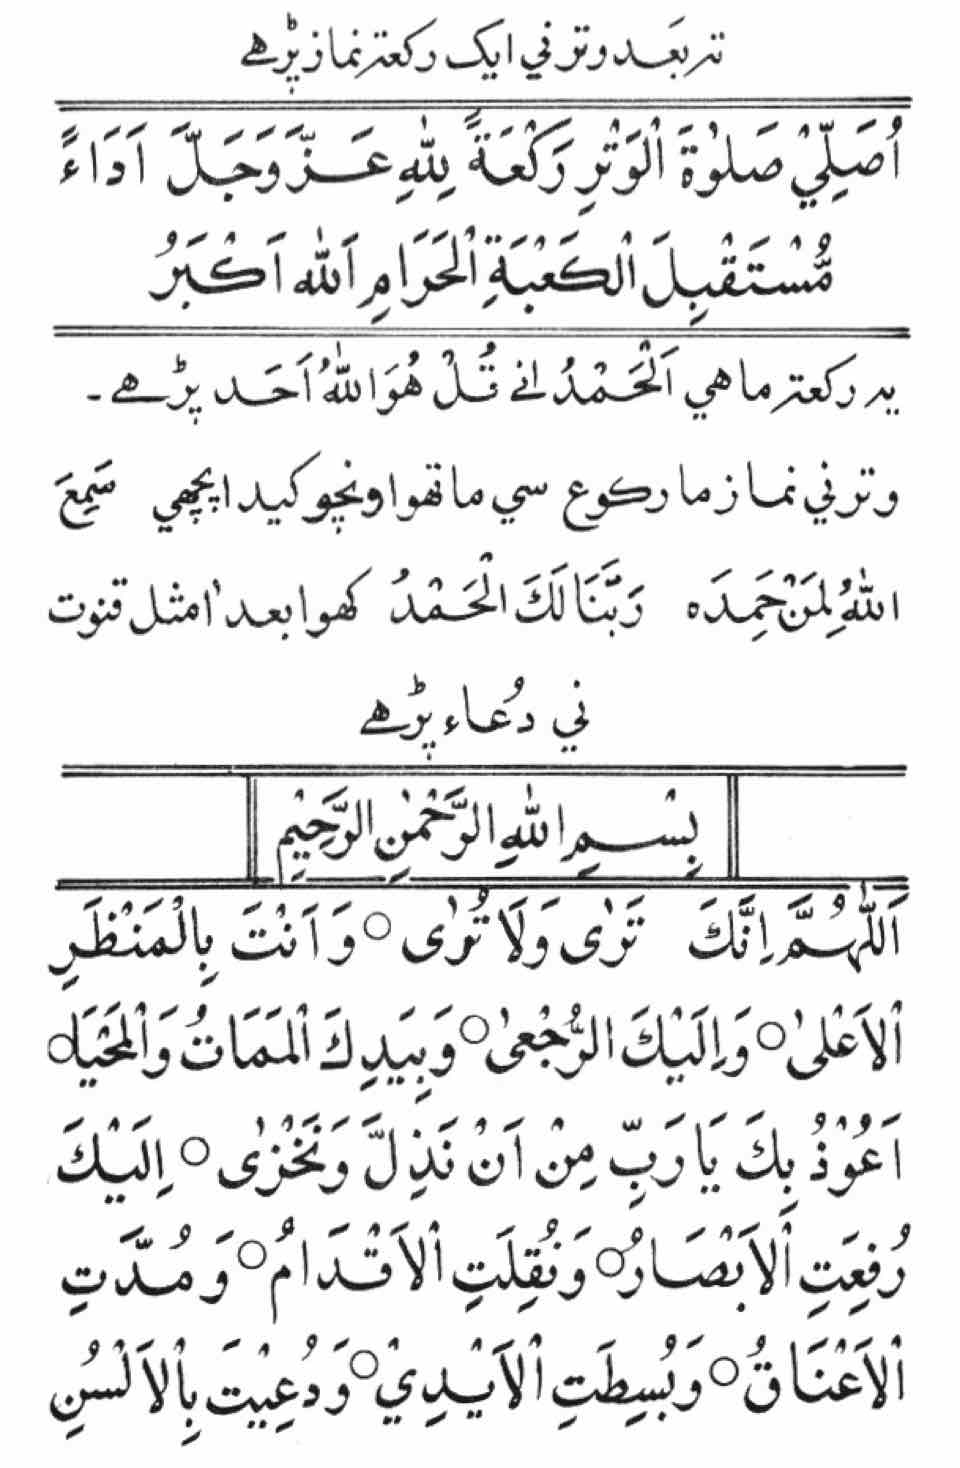 تہ بَعَد وتر ني ايک رکعتہ نماز پڑهے
اُصَلِّيْ صَلٰوةَ الْوَتْرِ رَكْعَةً لِلّٰهِ عَزَّ وَجَلَّ اَدَاءً
مُّسْتَقْبِلَ الْكَعْبَةِ الْحَرَامِ اَللّٰه اَكْبَرُ
يہ رکعتہ ما هي اَلْحَمْدُ انے قُلْ هُوَ اللّٰهُ اَحَد پڑهے۔
وتر ني نماز ما رکوع سي ماتهوا ونچو کيدا پچهي سَمِعَ
اللّٰهُ لِمَنْ حَمِدَه رَبَّنَا لَكَ الْحَمْدُ کهوا بعد اٰ مثل قنوت
ني دُعاء پڑهے
بِسْمِ اللّٰهِ الرَّحْمٰنِ الرَّحِيْمِ
اَللّٰهُمَّ اِنَّكَ تَرٰى وَلَا تُرٰى ○ وَاَنْتَ بِالْمَنْظَرِ
الْاَعْلٰى ○ وَاِلَيْكَ الرُّجْعٰى ○ وَبِيَدِكَ الْمَمَاتُ وَالْمَحْيَا ○
اَعُوْذُ بِكَ يَا رَبِّ مِنْ اَنْ نَذِلَّ وَنَخْزٰى ○ اِلَيْكَ
رُفِعَتِ الْاَبْصَارُ ○ وَنُقِلَتِ الْاَقْدَامُ ○ وَمُدَّتِ
الْاَعْنَاقُ ○ وَبُسِطَتِ الْاَيْدِيْ ○ وَدُعِيْتَ بِالْاَلْسُنِ